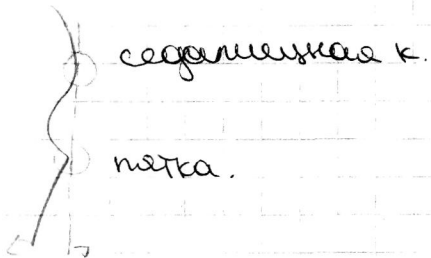 седалищная к.
пятка.